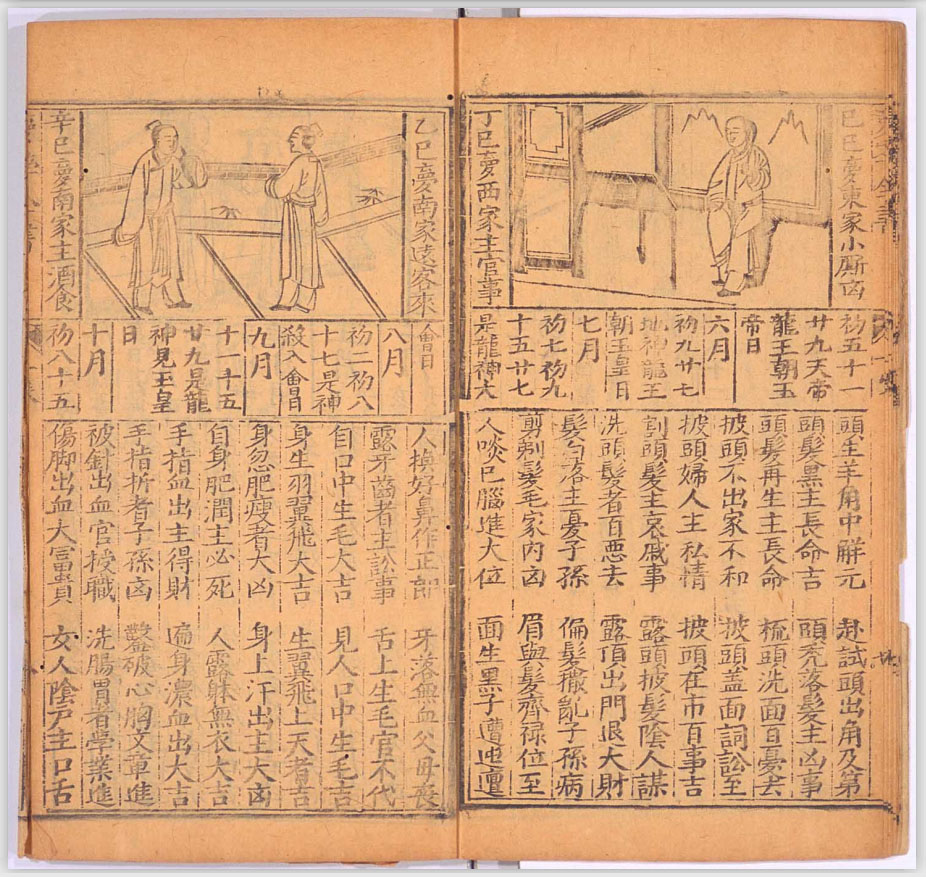 己巳夢東家小厮凶
丁巳夢西家主官事
初五十一
廿九天帝
龍王朝玉
帝日
六月
初九廿七
地神龍王
朝玉皇日
七月
初七初九
十五廿七
是龍神大
頭生羊角中解元 赴試頭出角及第
頭髮黑主長命吉 頭禿落髮主凶事
頭髮再生主長命 梳頭洗面百憂去
披頭不出家不和 披頭盖面詞訟至
披頭婦人主私情 披頭在市百事吉
割頭髮主哀戚事 露頭披髮陰人謀
洗頭髮者百悪去 露頂出門退大財
髮勻落主憂子孫 偏髮攏亂子孫病
剪剃髮毛家内凶 眉與髮齊禄位至
人啖巳腦進大位 面生黑子遭迍邅
乙巳夢南家遠客來
辛巳夢南家主酒食
會日
八月
初二初八
十七是神
殺入會日
九月
十一十五
廿九是龍
神見玉皇
日
十月
初八十五
人損好鼻作正郎 牙落無血父母喪
露牙齒者主訟事 舌上生毛官不代
自口中生毛大吉 見人口中生毛吉
身生羽翼飛大吉 生翼飛上天者吉
身忽肥瘦者大凶 身上汗出主大凶
自身肥潤主必死 人露躰無衣大吉
手指血出主得財 遍身濃血出大吉
手指折者子孫凶 鑿破心胸文章進
被針出血官授職 洗腸胃者學業進
傷脚出血大富貴 女人陰戸主口舌